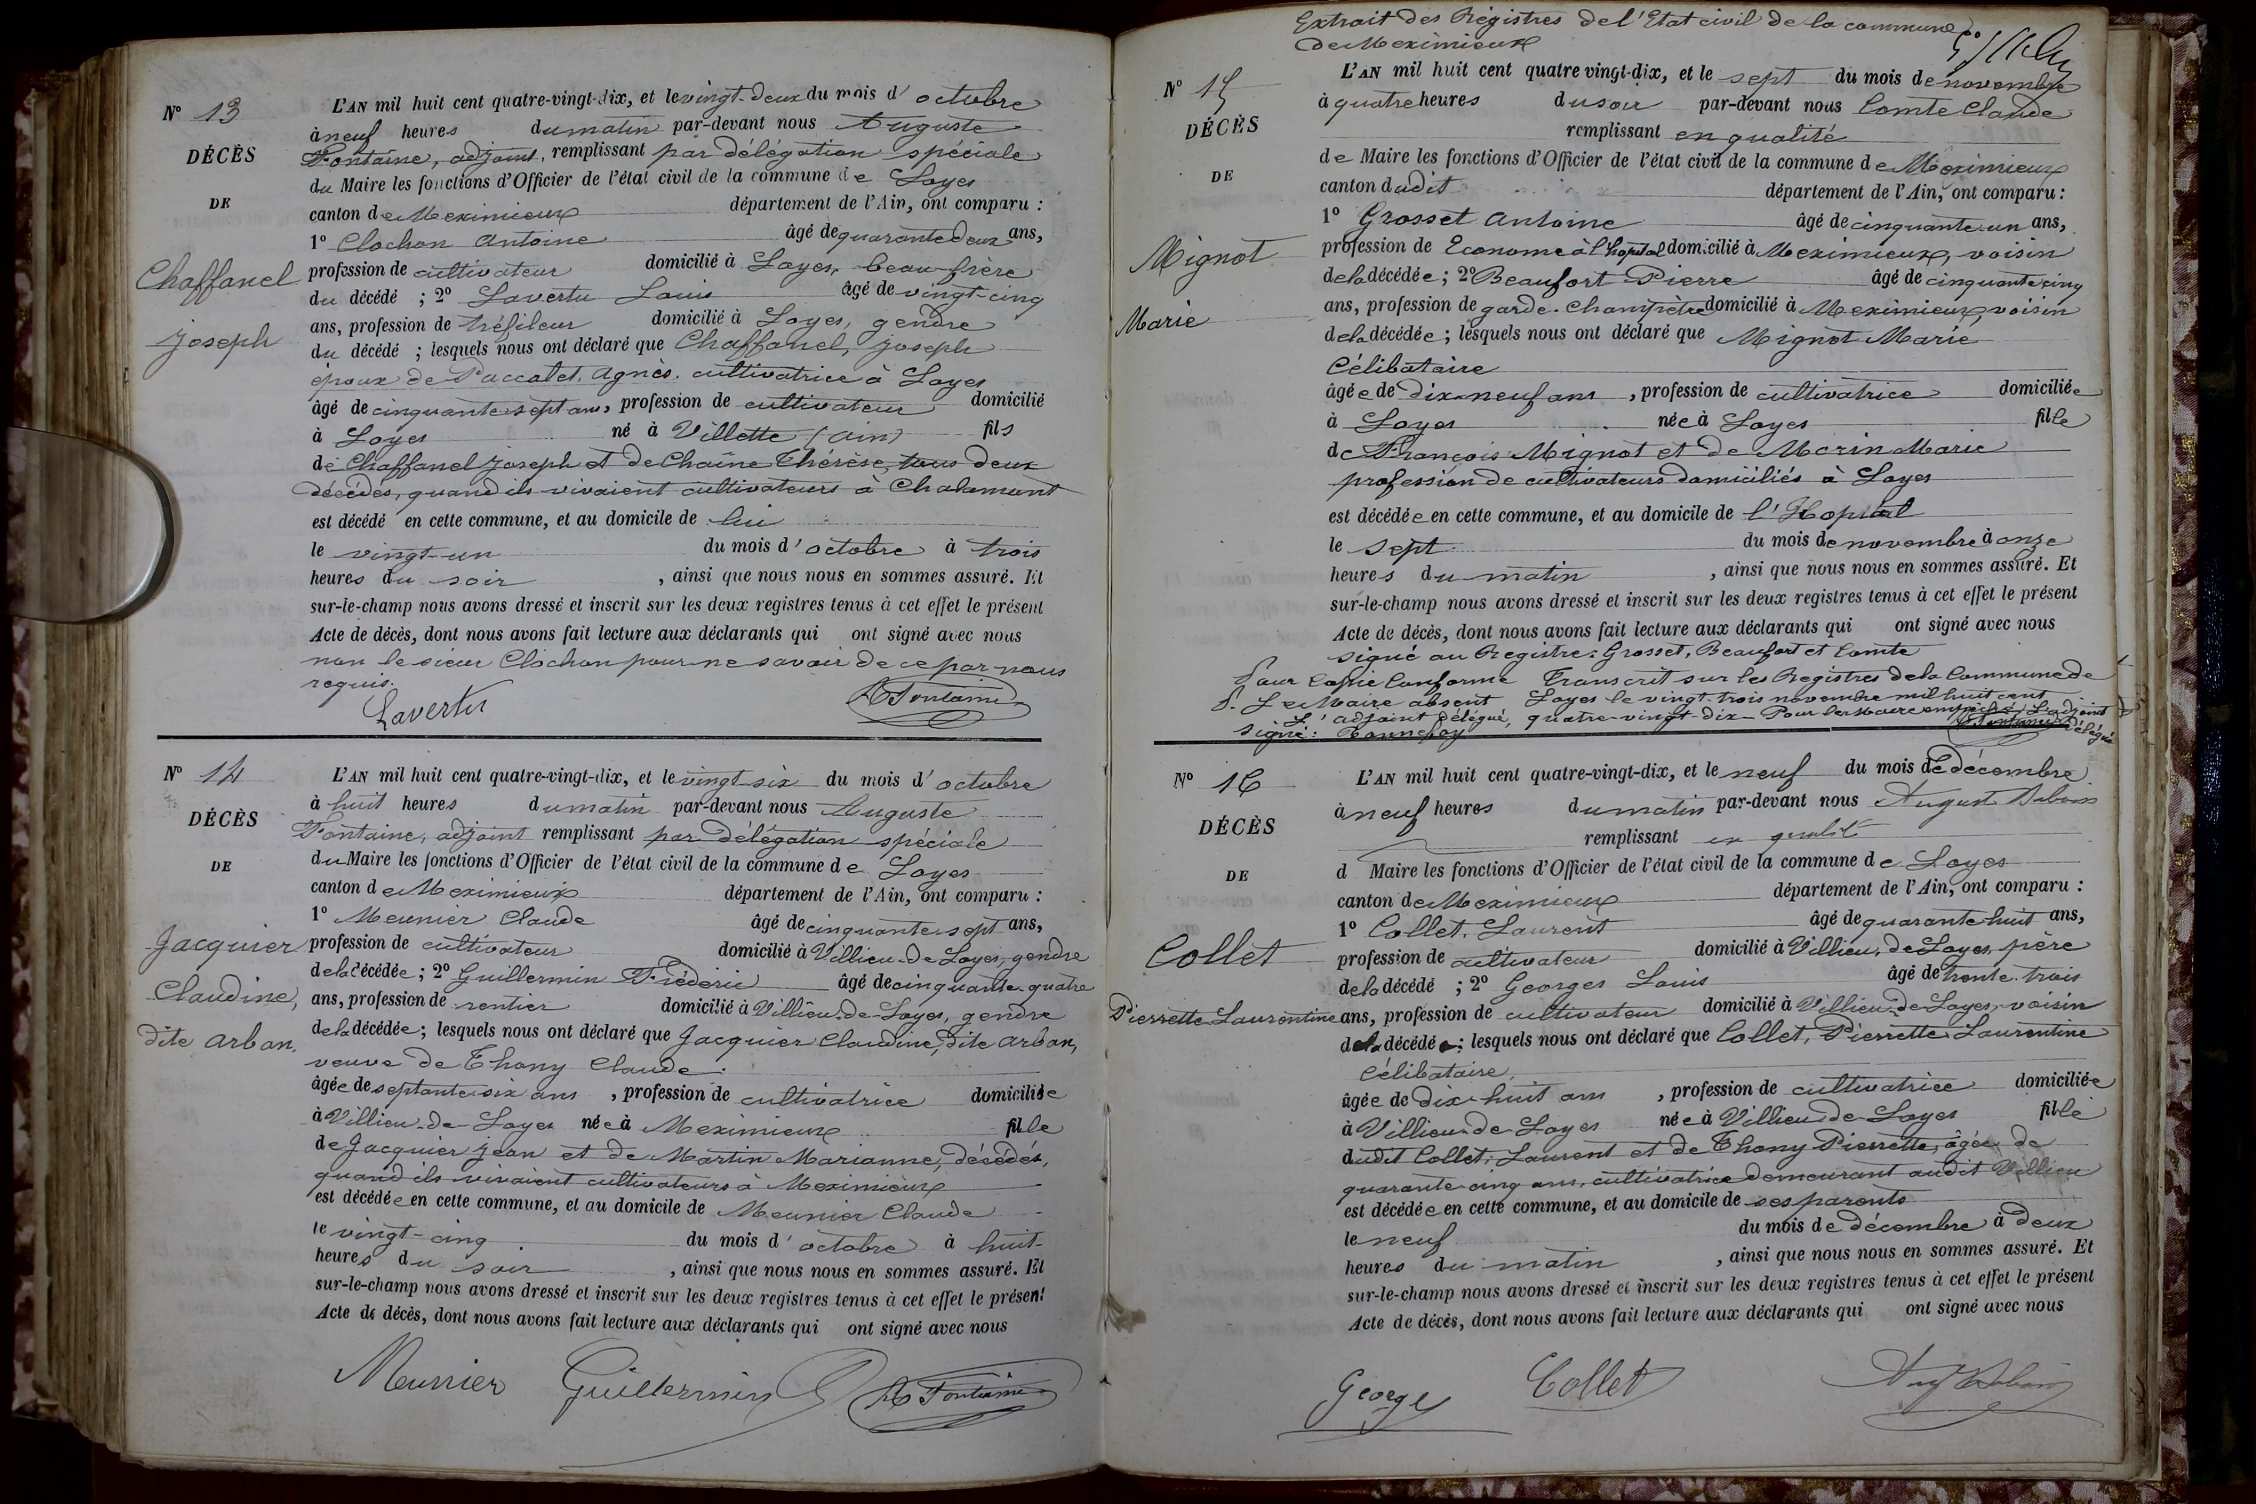 N° 13
DÉCÈS
DE
Chaffanel
Joseph
L'AN mil huit cent quatre-vingt-dix, et le vingt-deux du mois d'octobre
à neuf heures du matin par-devant nous Auguste
Fontaine, adjoint, remplissant par délégation spéciale
du Maire les fonctions d'Officier de l'état civil de la commune de Loyes
canton de Meximieux département de l'Ain, ont comparu :
1° Clochon Antoine âgé de quarante deux ans,
profession de cultivateur domicilié à Loyes, beau-frère
du décédé ; 2° Lavertu Louis âgé de vingt-cinq
ans, profession de tréfileur domicilié à Loyes, gendre
du décédé ; lesquels nous ont déclaré que Chaffanel, Joseph
époux de Paccalet, Agnès, cultivatrice à Loyes
âgé de cinquante sept ans, profession de cultivateur domicilié
à Loyes né à Villette (Ain) fils
de Chaffanel Joseph et de Chaîne Thérèse, tous deux
décédés, quand ils vivaient cultivateurs à Chalamont
est décédé en cette commune, et au domicile de lui
le vingt-un du mois d'octobre à trois
heures du soir, ainsi que nous nous en sommes assuré. Et
sur-le-champ nous avons dressé et inscrit sur les deux registres tenus à cet effet le présent
Acte de décès, dont nous avons fait lecture aux déclarants qui ont signé avec nous
non le sieur Clochon pour ne savoir de ce par nous
requis.
Lavertu A Fontaine
N° 14
DÉCÈS
DE
Jacquier
Claudine,
dite Arban.
L'AN mil huit cent quatre-vingt-dix, et le vingt six du mois d'octobre
à huit heures du matin par-devant nous Auguste
Fontaine, adjoint remplissant par délégation spéciale
du Maire les fonctions d'Officier de l'état civil de la commune de Loyes
canton de Meximieux département de l'Ain, ont comparu :
1° Meunier Claude âgé de cinquante sept ans,
profession de cultivateur domicilié à Villieu-de-Loyes, gendre
de la décédée ; 2° Guillermin Frédéric âgé de cinquante-quatre
ans, profession de rentier domicilié à Villieu-de-Loyes, gendre
de la décédée ; lesquels nous ont déclaré que Jacquier Claudine, dite Arban,
veuve de Thony Claude.
âgée de septante six ans, profession de cultivatrice domiciliée
à Villieu-de-Loyes née à Meximieux fille
de Jacquier Jean et de Martin Marianne, décédés,
quand ils vivaient cultivateurs à Meximieux
est décédée en cette commune, et au domicile de Meunier Claude
le vingt-cinq du mois d'octobre à huit
heures du soir, ainsi que nous nous en sommes assuré. Et
sur-le-champ nous avons dressé et inscrit sur les deux registres tenus à cet effet le présent
Acte de décès, dont nous avons fait lecture aux déclarants qui ont signé avec nous
Meunier Guillermin A Fontaine
Extrait des Régistres de l'Etat civil de la commune
de Meximieux
N° 15
DÉCÈS
DE
Mignot
Marie
L'AN mil huit cent quatre vingt-dix, et le sept du mois de novembre
à quatre heures du soir par-devant nous Comte Claude
remplissant en qualité
de Maire les fonctions d'Officier de l'état civil de la commune de Meximieux
canton dudit département de l'Ain, ont comparu :
1° Grosset Antoine âgé de cinquante-un ans,
profession de Econome à l'hopital domicilié à Meximieux, voisin
de la décédée ; 2° Beaufort Pierre âgé de cinquante cinq
ans, profession de garde-champêtre domicilié à Meximieux, voisin
de la décédée ; lesquels nous ont déclaré que Mignot Marie
Célibataire
âgée de dix-neuf ans, profession de cultivatrice domiciliée
à Loyes née à Loyes fille
de François Mignot et de Morin Marie
profession de cultivateurs domiciliés à Loyes
est décédée en cette commune, et au domicile de l'Hopital
le sept du mois de novembre à onze
heures du matin, ainsi que nous nous en sommes assuré. Et
sur-le-champ nous avons dressé et inscrit sur les deux registres tenus à cet effet le présent
Acte de décès, dont nous avons fait lecture aux déclarants qui ont signé avec nous
signé au Registre : Grosset, Beaufort et Comte
Pour Copie Conforme Transcrit sur les Registres de la Commune de
P. Le Maire absent Loyes le vingt-trois novembre mil huit cent
L'adjoint délégué, quatre-vingt-dix - Pour le Maire empêché L'adjoint
signé : A Fontaine délégué
N° 16
DÉCÈS
DE
Collet
Pierrette Laurentine
L'AN mil huit cent quatre-vingt-dix, et le neuf du mois de décembre
à neuf heures du matin par-devant nous August
remplissant en qualité
d Maire les fonctions d'Officier de l'état civil de la commune de Loyes
canton de Meximieux département de l'Ain, ont comparu :
1° Collet, Laurent âgé de quarante-huit ans,
profession de cultivateur domicilié à Villieu, de Loyes, père
de la décédé ; 2° Georges Louis âgé de trente-trois
ans, profession de cultivateur domicilié à Villieu-de-Loyes, voisin
de la décédée ; lesquels nous ont déclaré que Collet, Pierrette Laurentine
Célibataire.
âgée de dix-huit ans, profession de cultivatrice domiciliée
à Villieu-de-Loyes née à Villieu-de-Loyes fille
dudit Collet, Laurent et de Thony Pierrette, âgée de
quarante-cinq ans, cultivatrice demeurant audit Villieu
est décédée en cette commune, et au domicile de ses parents
le neuf du mois de décembre à deux
heures du matin, ainsi que nous nous en sommes assuré. Et
sur-le-champ nous avons dressé et inscrit sur les deux registres tenus à cet effet le présent
Acte de décès, dont nous avons fait lecture aux déclarants qui ont signé avec nous
George Collet